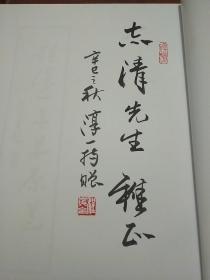 志清先生雅正
淳一持贈
辛巳之秋